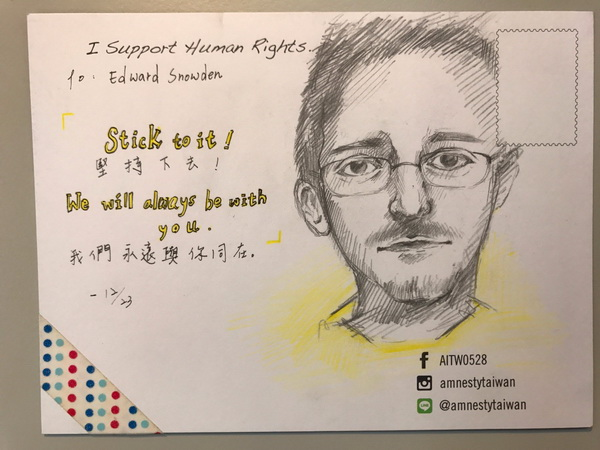 I Support Human Rights.
To: Edward Snowden
Stick to it!
堅持下去!
We will always be with
you.
我們永遠與你同在。
- 12/23
AITW0528
amnestytaiwan
@amnestytaiwan